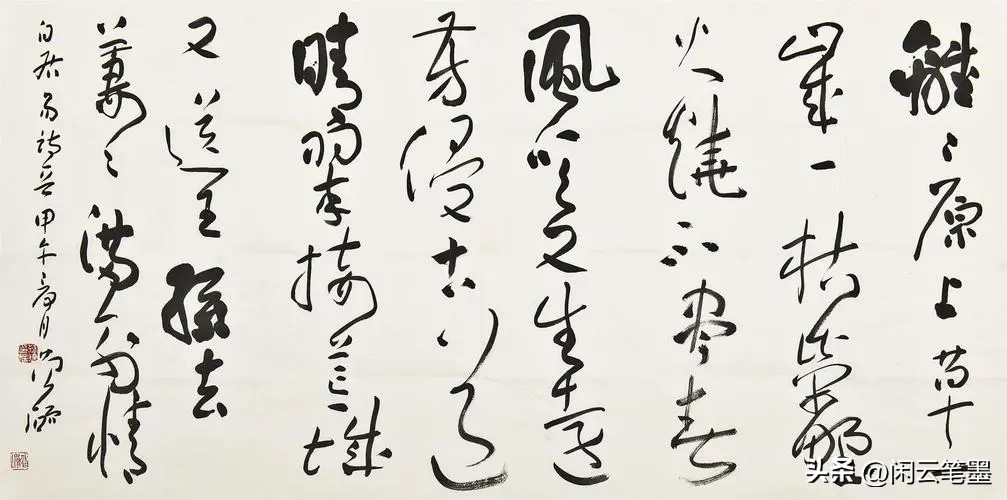 離々原上草一
歲一枯榮野
火燒不盡春
風吹又生遠
芳侵古道
晴翠接荒城
又送王孫去
萋々滿別情
白居易詩 甲午 月
头条 @闲云笔墨